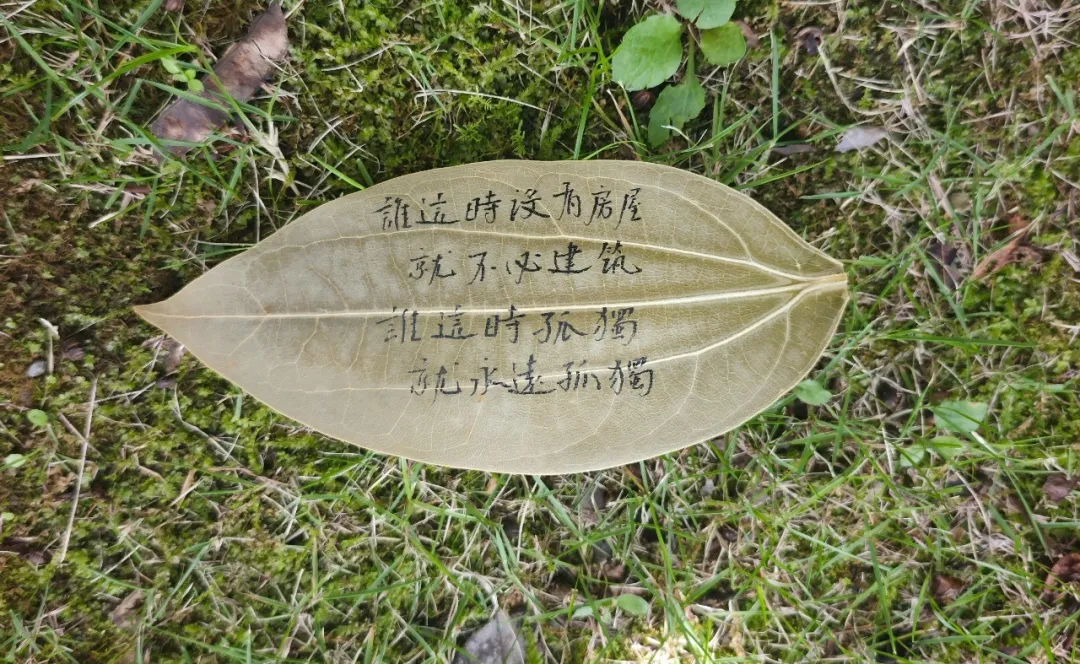 誰這時没有房屋
就不必建筑
誰這時孤獨
就永遠孤獨